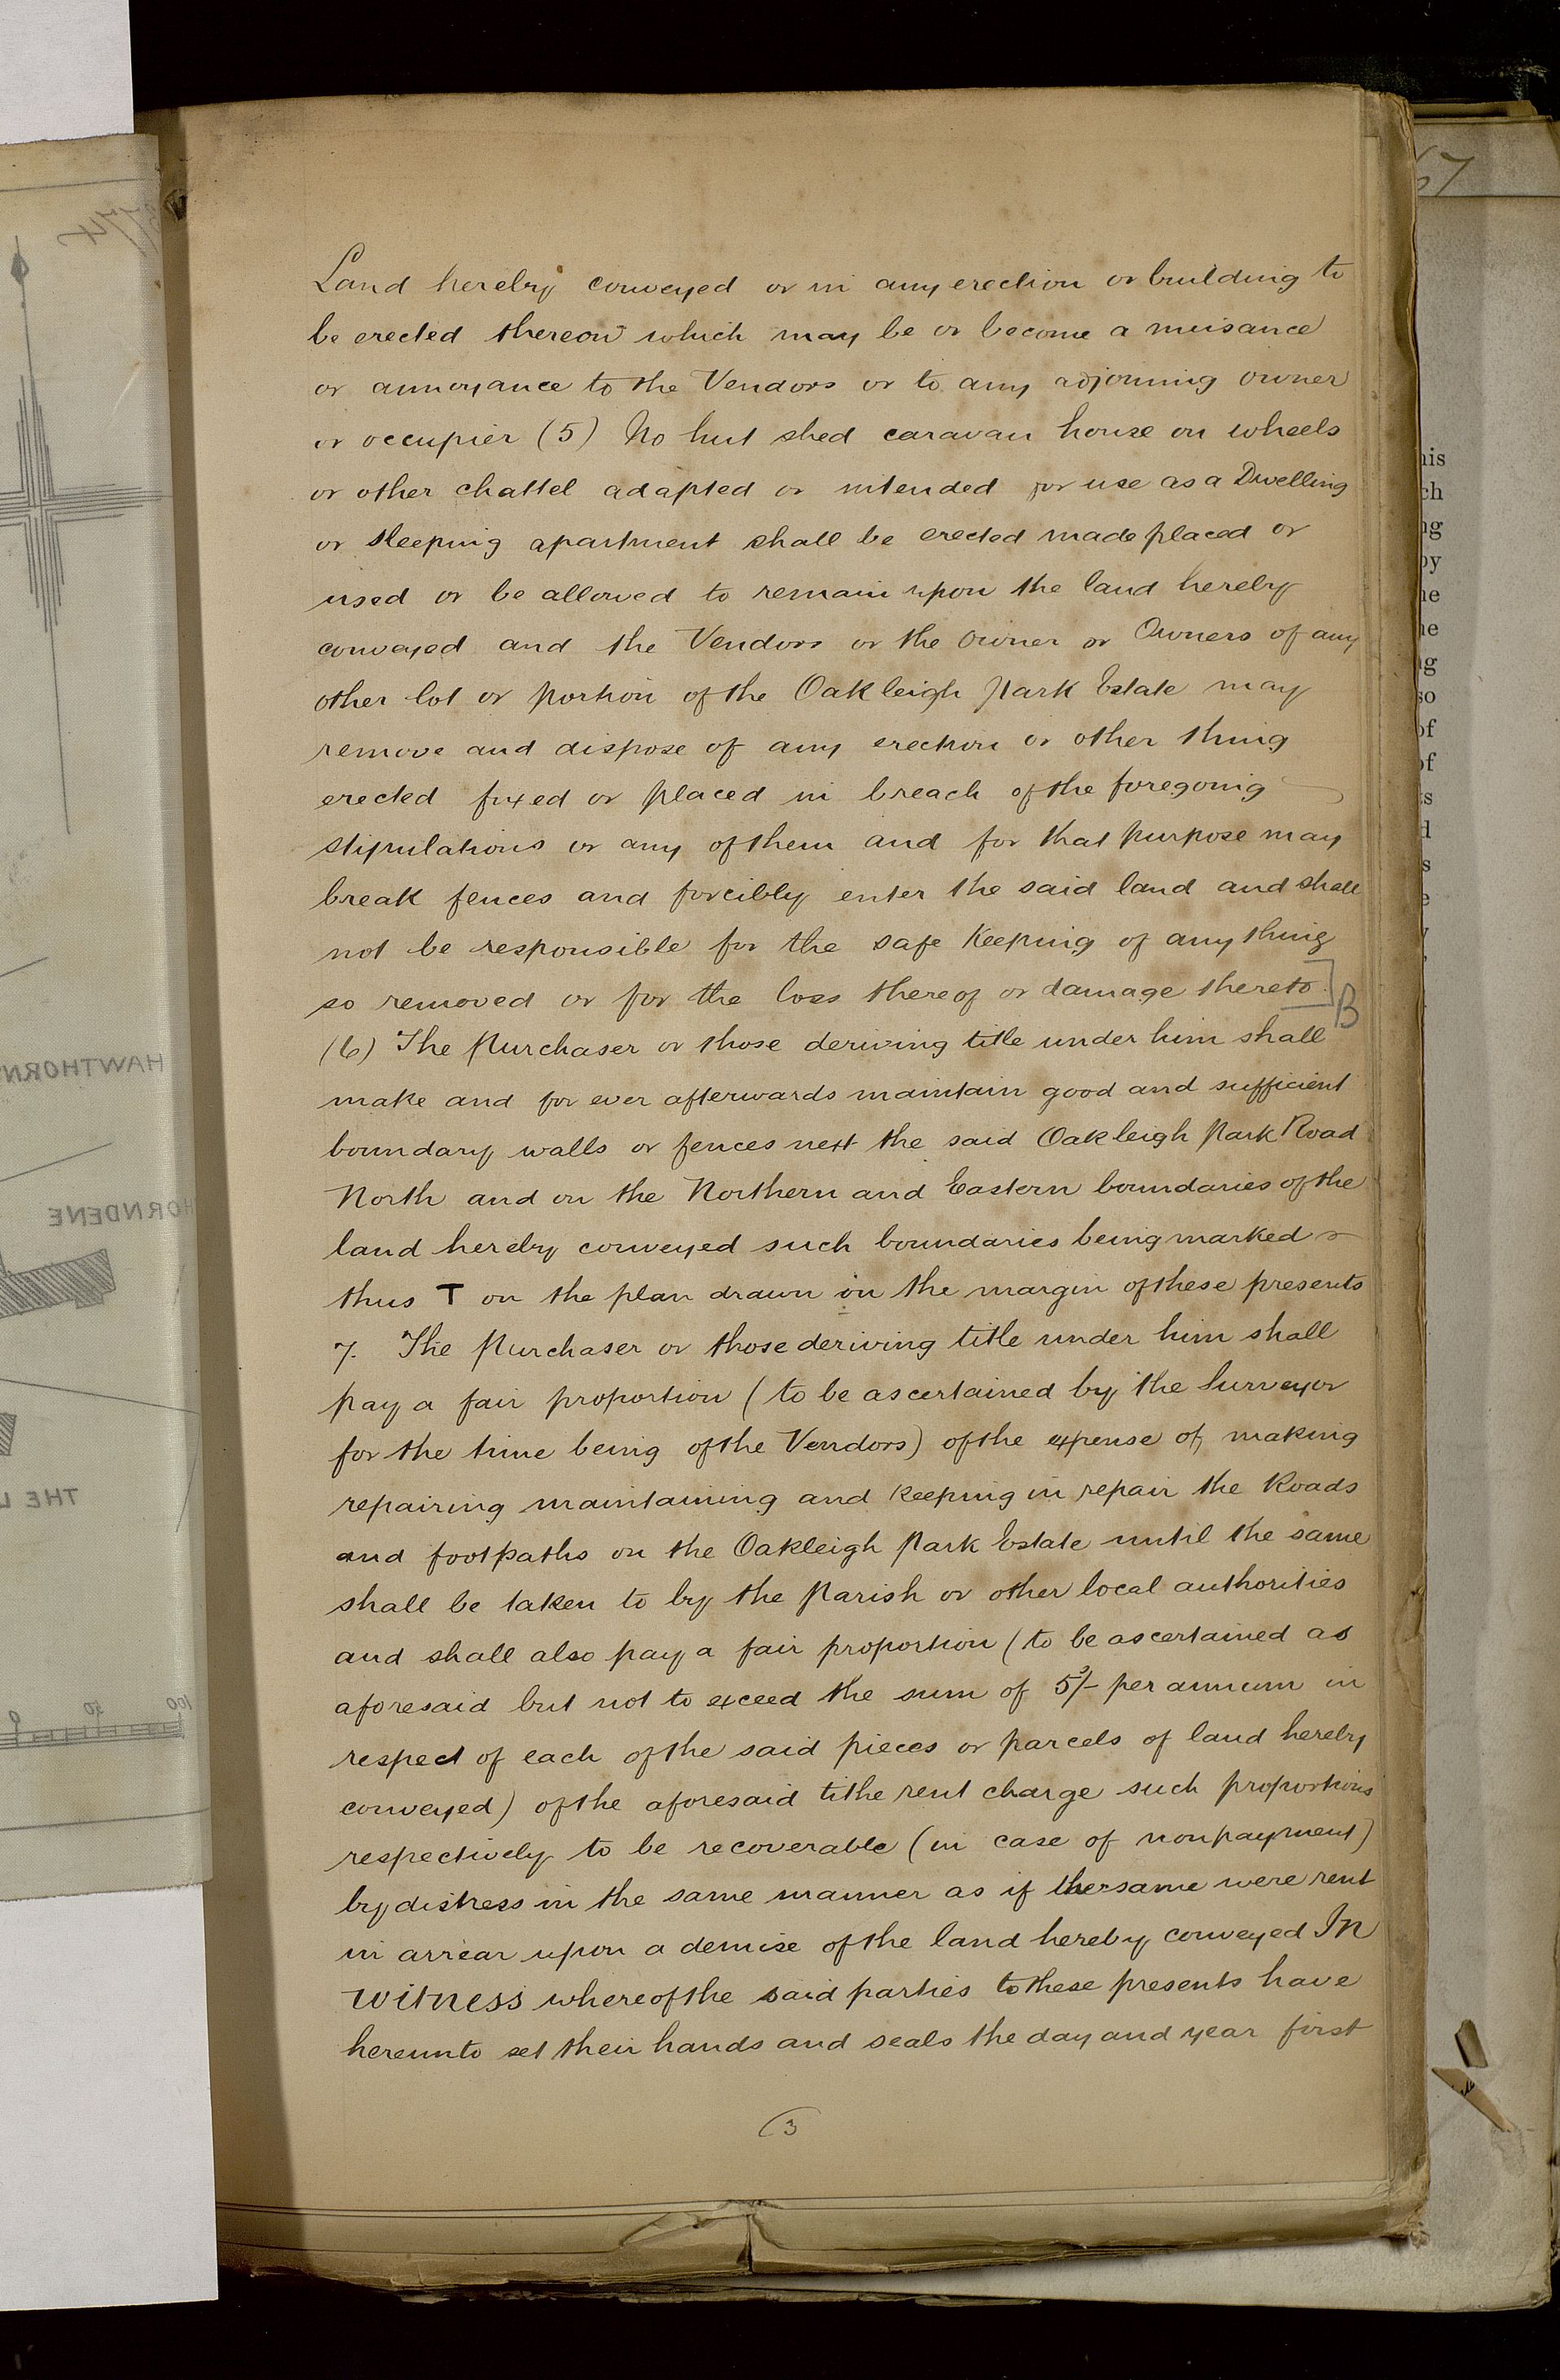 Land hereby conveyed or in any erection or building to
be erected thereon which may be or become a nuisance
or annoyance to the Vendors or to any adjoining owner
or occupier (5) No hut shed caravan house on wheels
or other chattel adapted or intended for use as a Dwelling
or sleeping apartment shall be erected made placed or
used or be allowed to remain upon the land hereby
conveyed and the Vendors or the owner or Owners of any
other lot or portion of the Oakleigh Park Estate may
remove and dispose of any erection or other thing
erected fixed or placed in breach of the foregoing
stipulations or any of them and for that purpose may
break fences and forcibly enter the said land and shall
not be responsible for the safe keeping of anything
so removed or for the loss thereof or damage thereto ] B
(6) The Purchaser or those deriving title under him shall
make and for ever afterwards maintain good and sufficient
boundary walls or fences next the said Oakleigh Park Road
North and on the Northern and Eastern boundaries of the
land hereby conveyed such boundaries being marked
thus T on the plan drawn in the margin of these presents
7. The Purchaser or those deriving title under him shall
pay a fair proportion (to be ascertained by the Surveyor
for the time being of the Vendors) of the expense of making
repairing maintaining and keeping in repair the Roads
and footpaths on the Oakleigh Park Estate until the same
shall be taken to by the Parish or other local authorities
and shall also pay a fair proportion (to be ascertained as
aforesaid but not to exceed the sum of 5/- per annum in
respect of each of the said pieces or parcels of land hereby
conveyed) of the aforesaid tithe rent charge such proportions
respectively to be recoverable (in case of nonpayment)
by distress in the same manner as if the same were rent
in arrear upon a demise of the land hereby conveyed In
witness whereof the said parties to these presents have
hereunto set their hands and seals the day and year first
3
HAWTHORN
HORNDENE
THE
0 50 100
67
his
ch
ng
by
he
he
ng
so
of
of